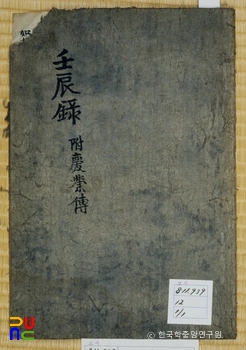 壬辰錄
附慶業傳
811.939
12
1/1
PUNG
© 한국학중앙연구원